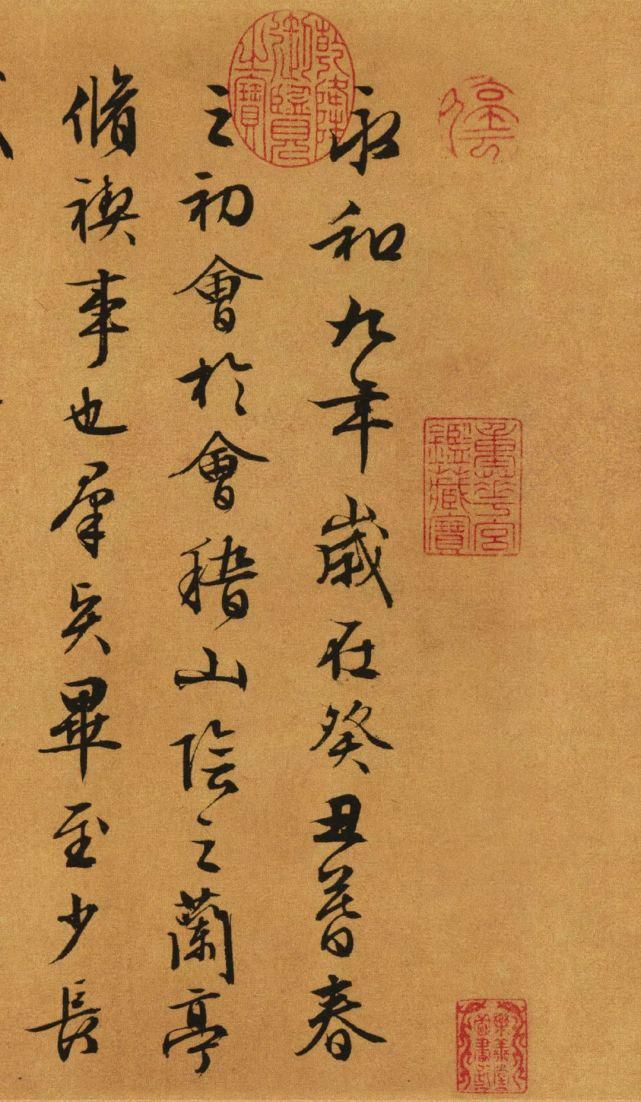 重華宮
鑑藏寶
樂善堂
圖書記
永和九年歲在癸丑暮春
乾隆
御覽
之寶
之初會於會稽山陰之蘭亭
脩禊事也羣賢畢至少長